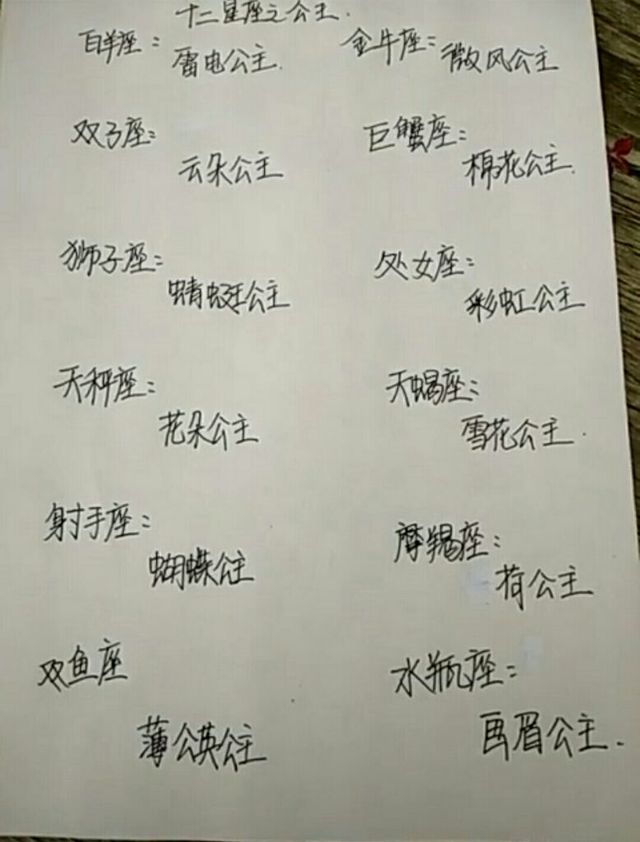 十二星座之公主.
白羊座:
雷电公主.
金牛座:
微风公主
双子座:
云朵公主
巨蟹座:
棉花公主.
狮子座:
蜻蜓公主
处女座:
彩虹公主
天秤座:
花朵公主
天蝎座:
雪花公主.
射手座:
蝴蝶公主
摩羯座:
荷公主
双鱼座
薄公英公主
水瓶座:
画眉公主.